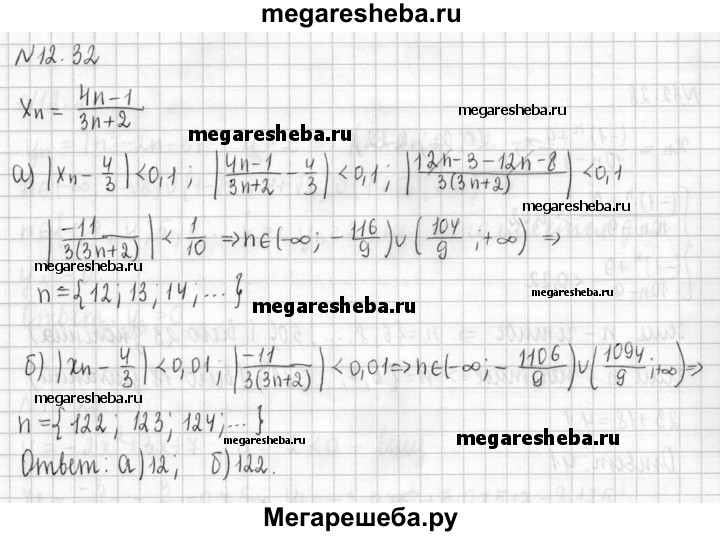 megaresheba.ru
N12.32
xn = 4n-1 / 3n+2
megaresheba.ru
megaresheba.ru
а) |xn - 4/3| < 0,1 ; |4n-1 / 3n+2 - 4/3| < 0,1 ; |12n-3-12n-8 / 3(3n+2)| < 0,1
megaresheba.ru
|-11 / 3(3n+2)| < 1/10 ⇒ n∈(-∞; -116/9)∪(104/9 ;+∞) ⇒
megaresheba.ru
n={12; 13; 14; ...}
megaresheba.ru
megaresheba.ru
б) |xn - 4/3| < 0,01 ; |-11 / 3(3n+2)| < 0,01 ⇒ n∈(-∞; -1106/9)∪(1094/9 ;+∞) ⇒
megaresheba.ru
n={122; 123; 124; ...}
megaresheba.ru
megaresheba.ru
Ответ: а)12; б)122.
Мегарешеба.ру